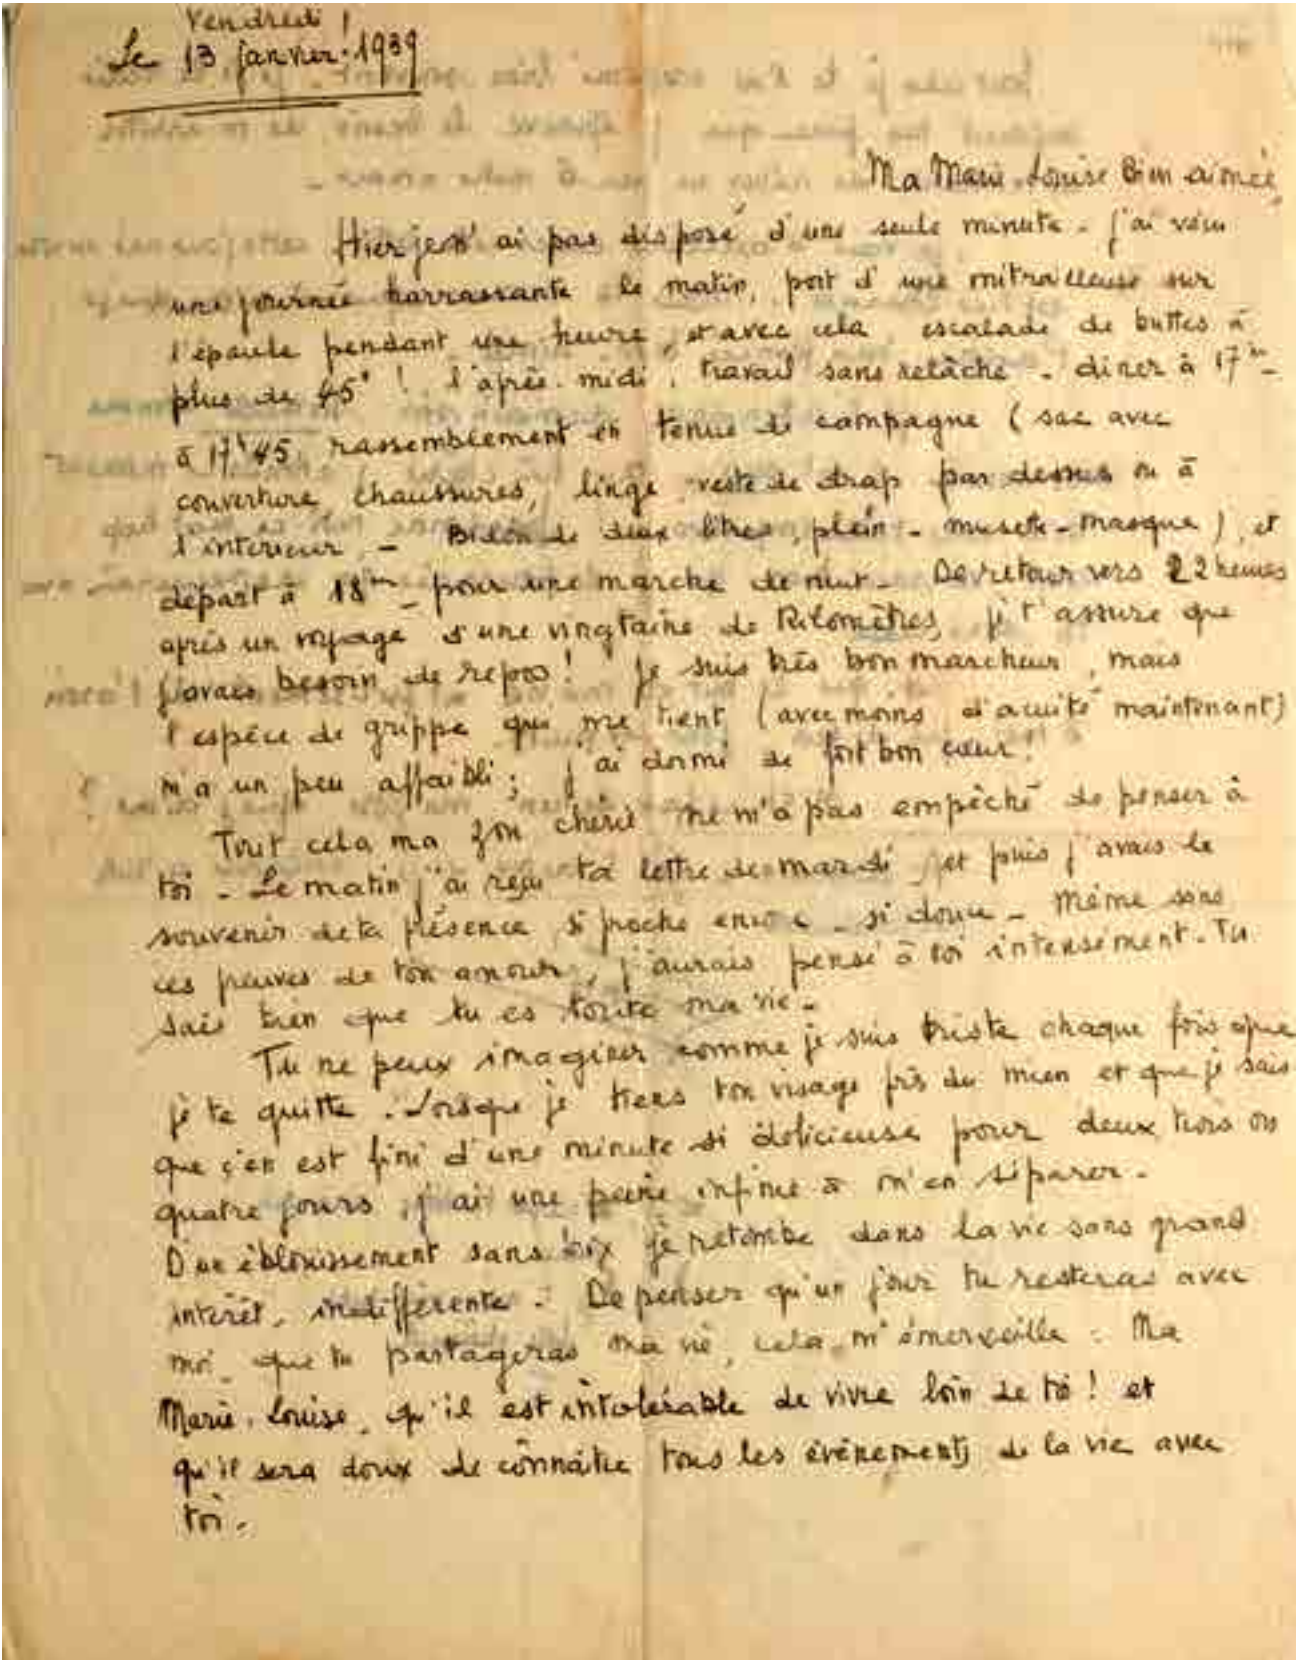 Vendredi !
Le 13 janvier 1939
Ma Marie Louise bien aimée,
Hier je n'ai pas disposé d'une seule minute - j'ai vécu
une journée harrassante le matin, port d'une mitrailleuse sur
l'épaule pendant une heure, et avec cela escalade de buttes à
plus de 45° ! l'après-midi, travail sans relâche - diner à 17h -
à 17h45 rassemblement en tenue de campagne (sac avec
couverture chaussures, linge, veste de drap par dessus ou à
l'intérieur - Bidon de deux litres, plein - musette - masque), et
départ à 18h - pour une marche de nuit - De retour vers 22 heures
après un voyage d'une vingtaine de Kilomètres, je t'assure que
j'avais besoin de repos ! Je suis très bon marcheur, mais
l'espèce de grippe qui me tient (avec moins d'acuité maintenant)
m'a un peu affaibli ; j'ai dormi de fort bon cœur !
Tout cela ma chérie ne m'a pas empêché de penser à
toi - Le matin j'ai reçu ta lettre de mardi, et puis j'avais le
souvenir de ta présence si proche encore - si douce - Même sans
ces preuves de ton amour, j'aurais pensé à toi intensément - Tu
sais bien que tu es toute ma vie -
Tu ne peux imaginer comme je suis triste chaque fois que
je te quitte. Lorsque je tiens ton visage près du mien et que je sais
que c'en est fini d'une minute si délicieuse pour deux, trois ou
quatre jours, j'ai une peine infinie à m'en séparer -
D'un éblouissement sans prix je retombe dans la vie sans grand
intérêt, indifférente - De penser qu'un jour tu resteras avec
moi, que tu partageras ma vie, cela m'émerveille - Ma
Marie-Louise, qu'il est intolérable de vivre loin de toi ! et
qu'il sera doux de connaître tous les événements de la vie avec
toi -